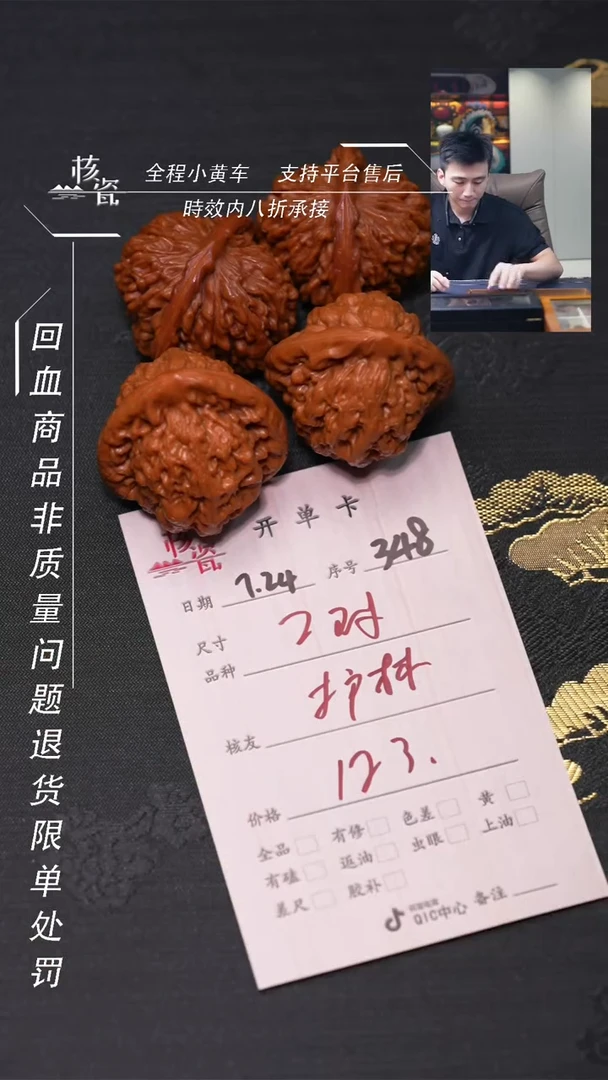 核瓷
全程小黄车 支持平台售后
時效内八折承接
回血商品非质量问题退货限单处罚
核瓷
开单卡
日期 7.24 序号 348
尺寸
品种 2对
护林
核友
123.
价格
全品 有修 色差 黄
有磕 返油 虫眼 上油
差尺 胶补
QIC中心 备注